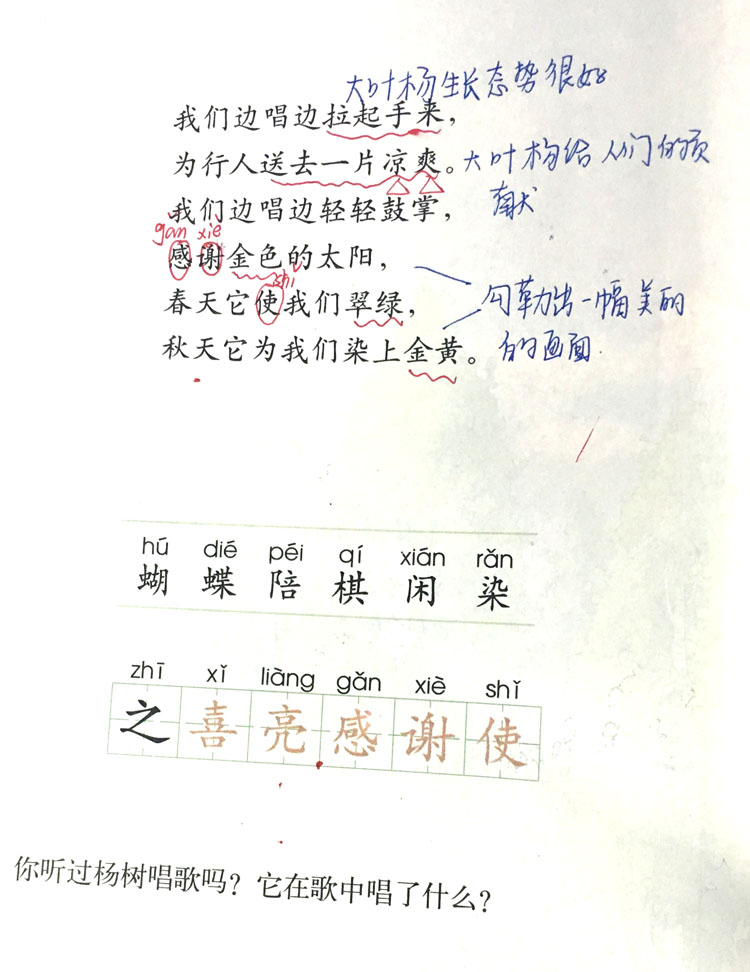 大叶杨生长态势很好
我们边唱边拉起手来，
为行人送去一片凉爽。
大叶杨给人们的贡
献
我们边唱边轻轻鼓掌，
gǎn xiè
感谢金色的太阳，
shǐ
春天它使我们翠绿，
勾勒出一幅美的
秋天它为我们染上金黄。
的画面
hú dié péi qí xián rǎn
蝴 蝶 陪 棋 闲 染
zhī xǐ liàng gǎn xiè shǐ
之 喜 亮 感 谢 使
你听过杨树唱歌吗？它在歌中唱了什么？